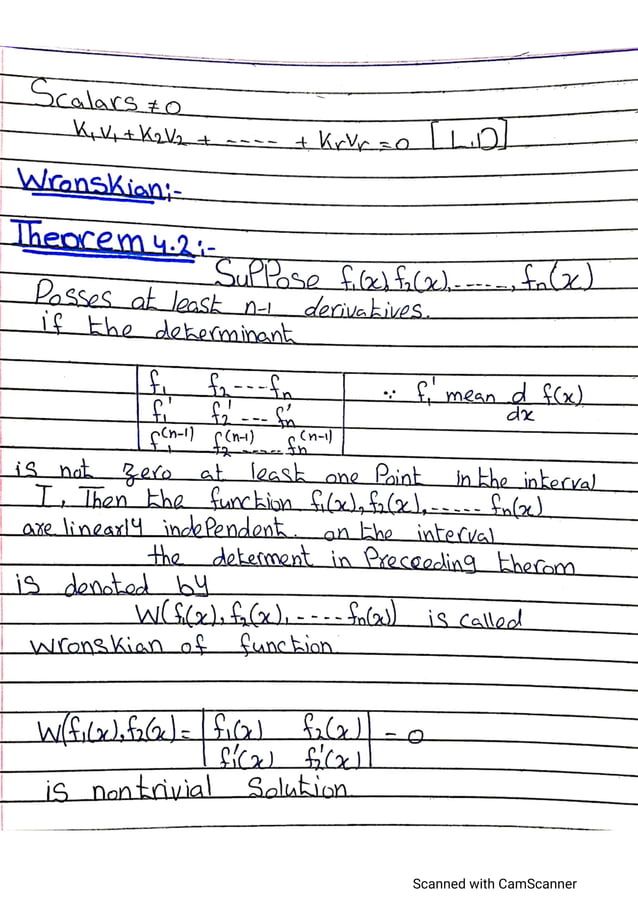 Scalars ≠ 0
K₁V₁+K₂V₂ + ---- + KrVr = 0 [L.D]
Wronskian:-
Theorem 4.2:-
Suppose f₁(x), f₂(x), ------, fn(x)
Posses at least n-1 derivatives.
if the determinant
f₁ f₂ --- fn ∵ f₁' mean d/dx f(x)
f₁' f₂' --- fn'
f₁^(n-1) f₂^(n-1) ----- fn^(n-1)
is not zero at least one Point in the interval
I, Then the function f₁(x), f₂(x), ----- fn(x)
are linearly independent. on the interval
the determent in Preceeding therom
is denoted by
W(f₁(x), f₂(x), ---- fn(x)) is called
wronskian of function
W(f₁(x), f₂(x) = | f₁(x) f₂(x) | = 0
| f₁'(x) f₂'(x) |
is nontrivial Solution
Scanned with CamScanner